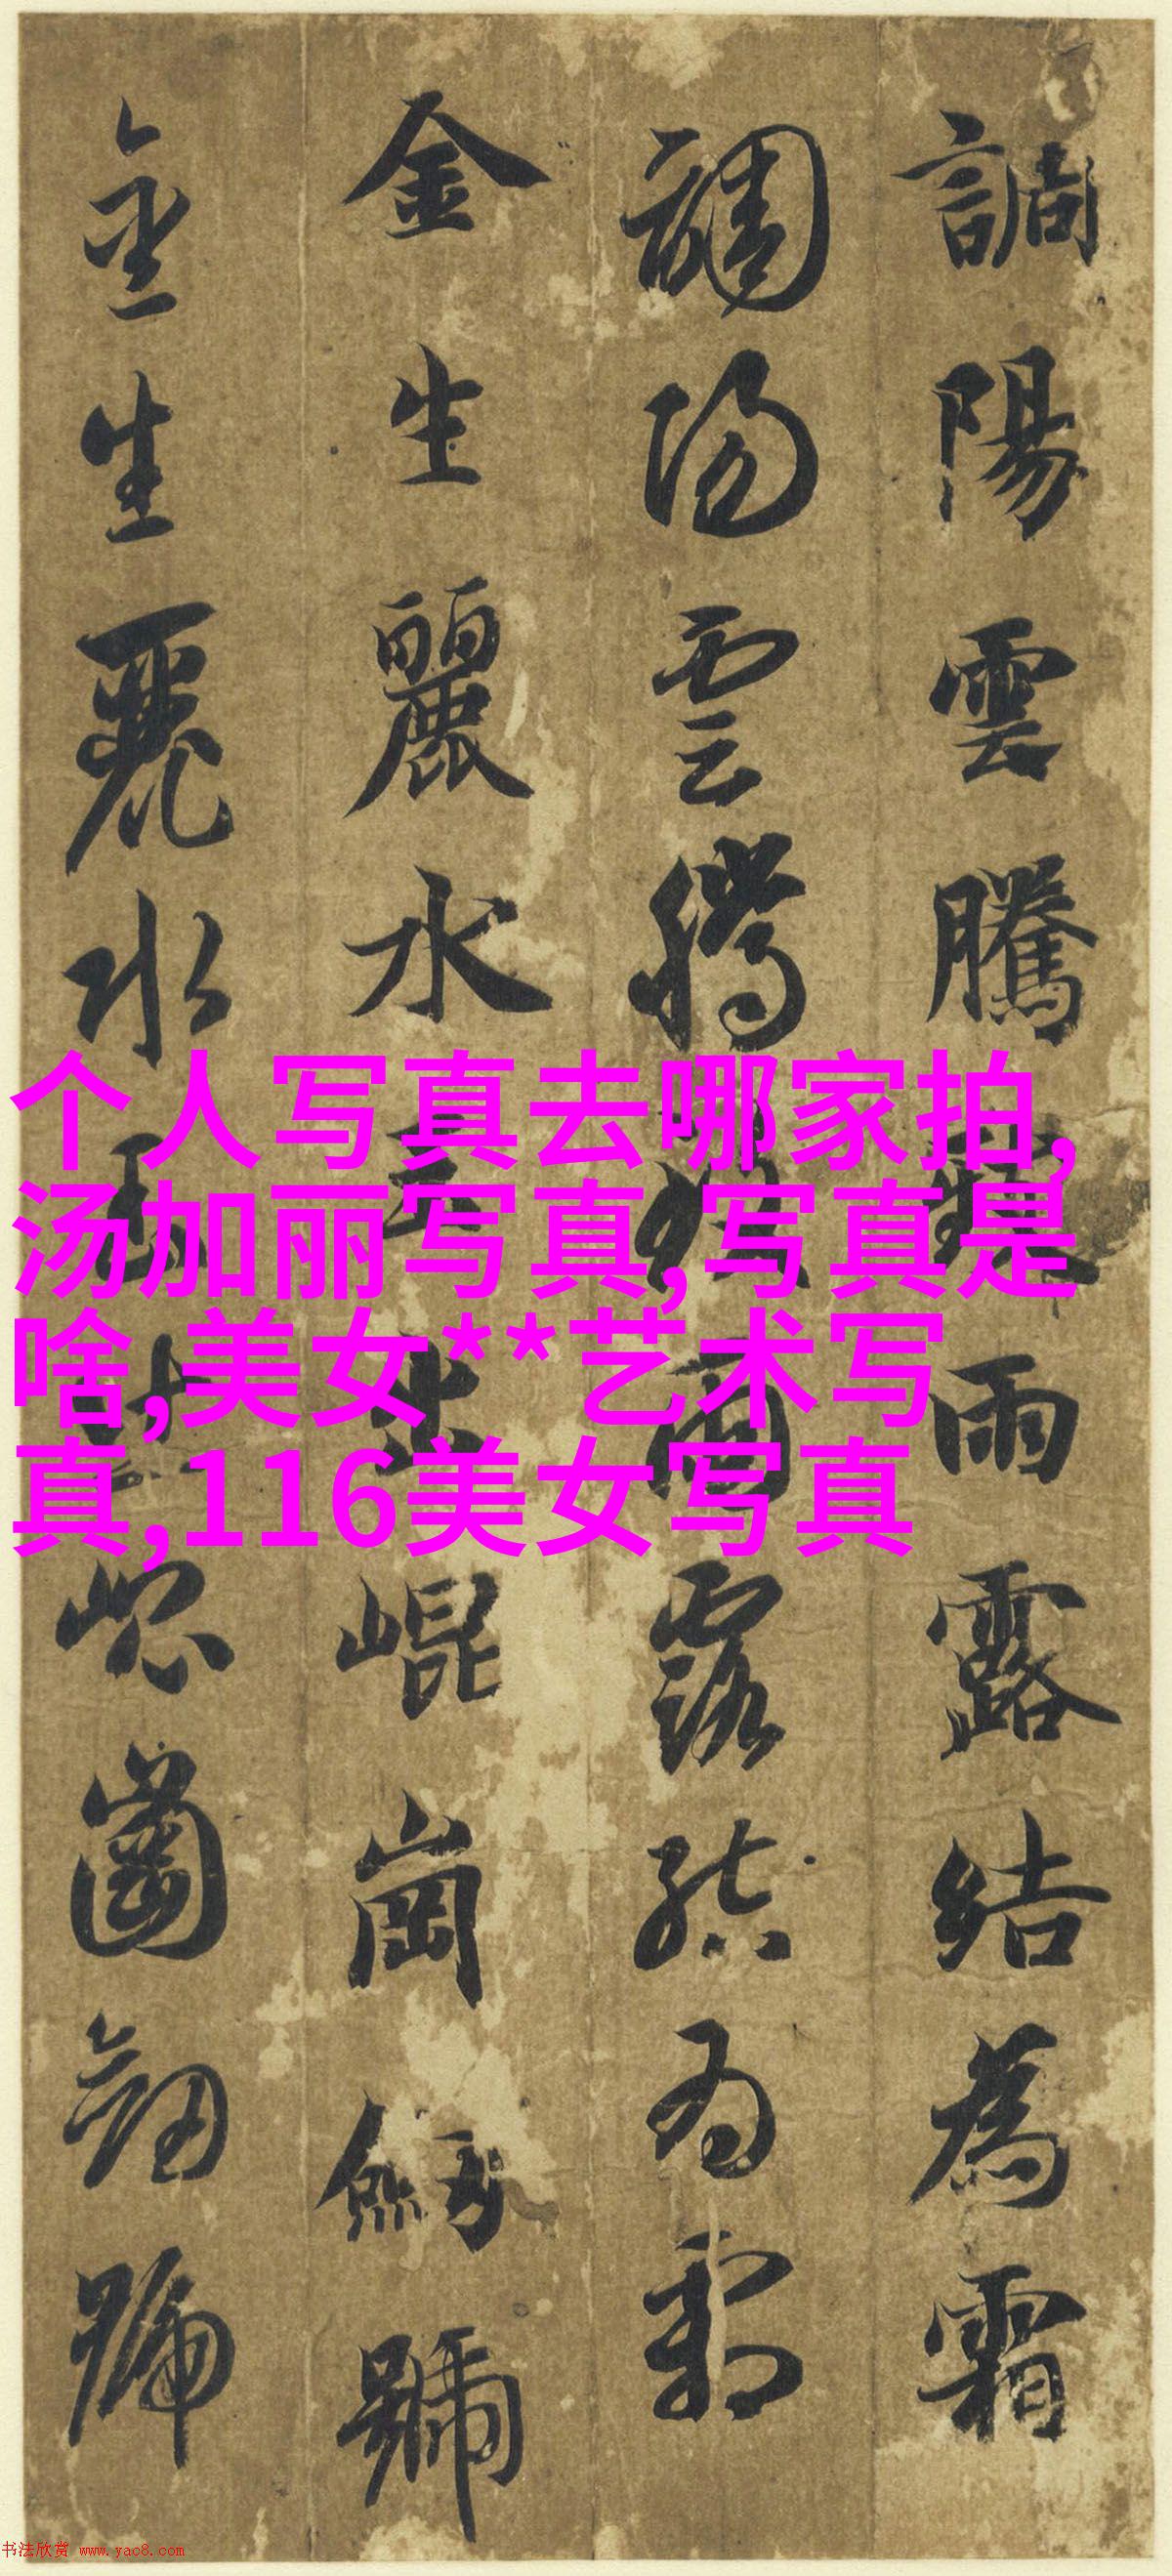 調陽雲騰雨露結為霜
調陽雲騰雨露結為霜
金生麗水崐崗劒號
金生麗水崐崗劒號
个人写真去哪家拍,
汤加丽写真,写真是
啥,美女**艺术写
真,116美女写真
书法欣赏 www.yac8.com